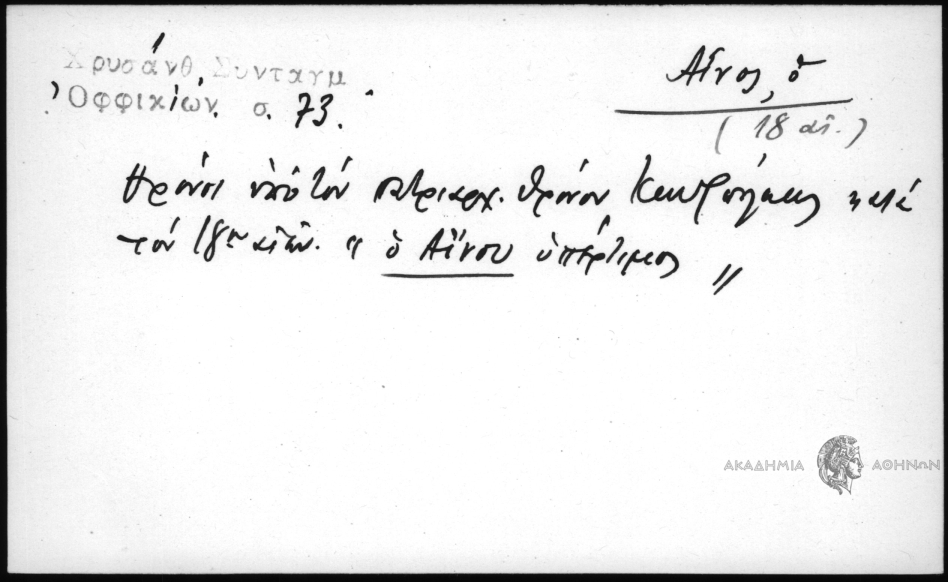 Χρυσάνθ. Συνταγμ
Ὀφφικίων. σ. 73.
Αἴνος, ὁ
(18 αἰ.)
Θρόνοι ὑπὸ τὸν πατριαρχ. θρόνον Κωνσταντινουπόλεως κατὰ
τὸν 18ον αἰῶν. " ὁ Αἴνου ὑπέρτιμος "
ΑΚΑΔΗΜΙΑ ΑΘΗΝΩΝ